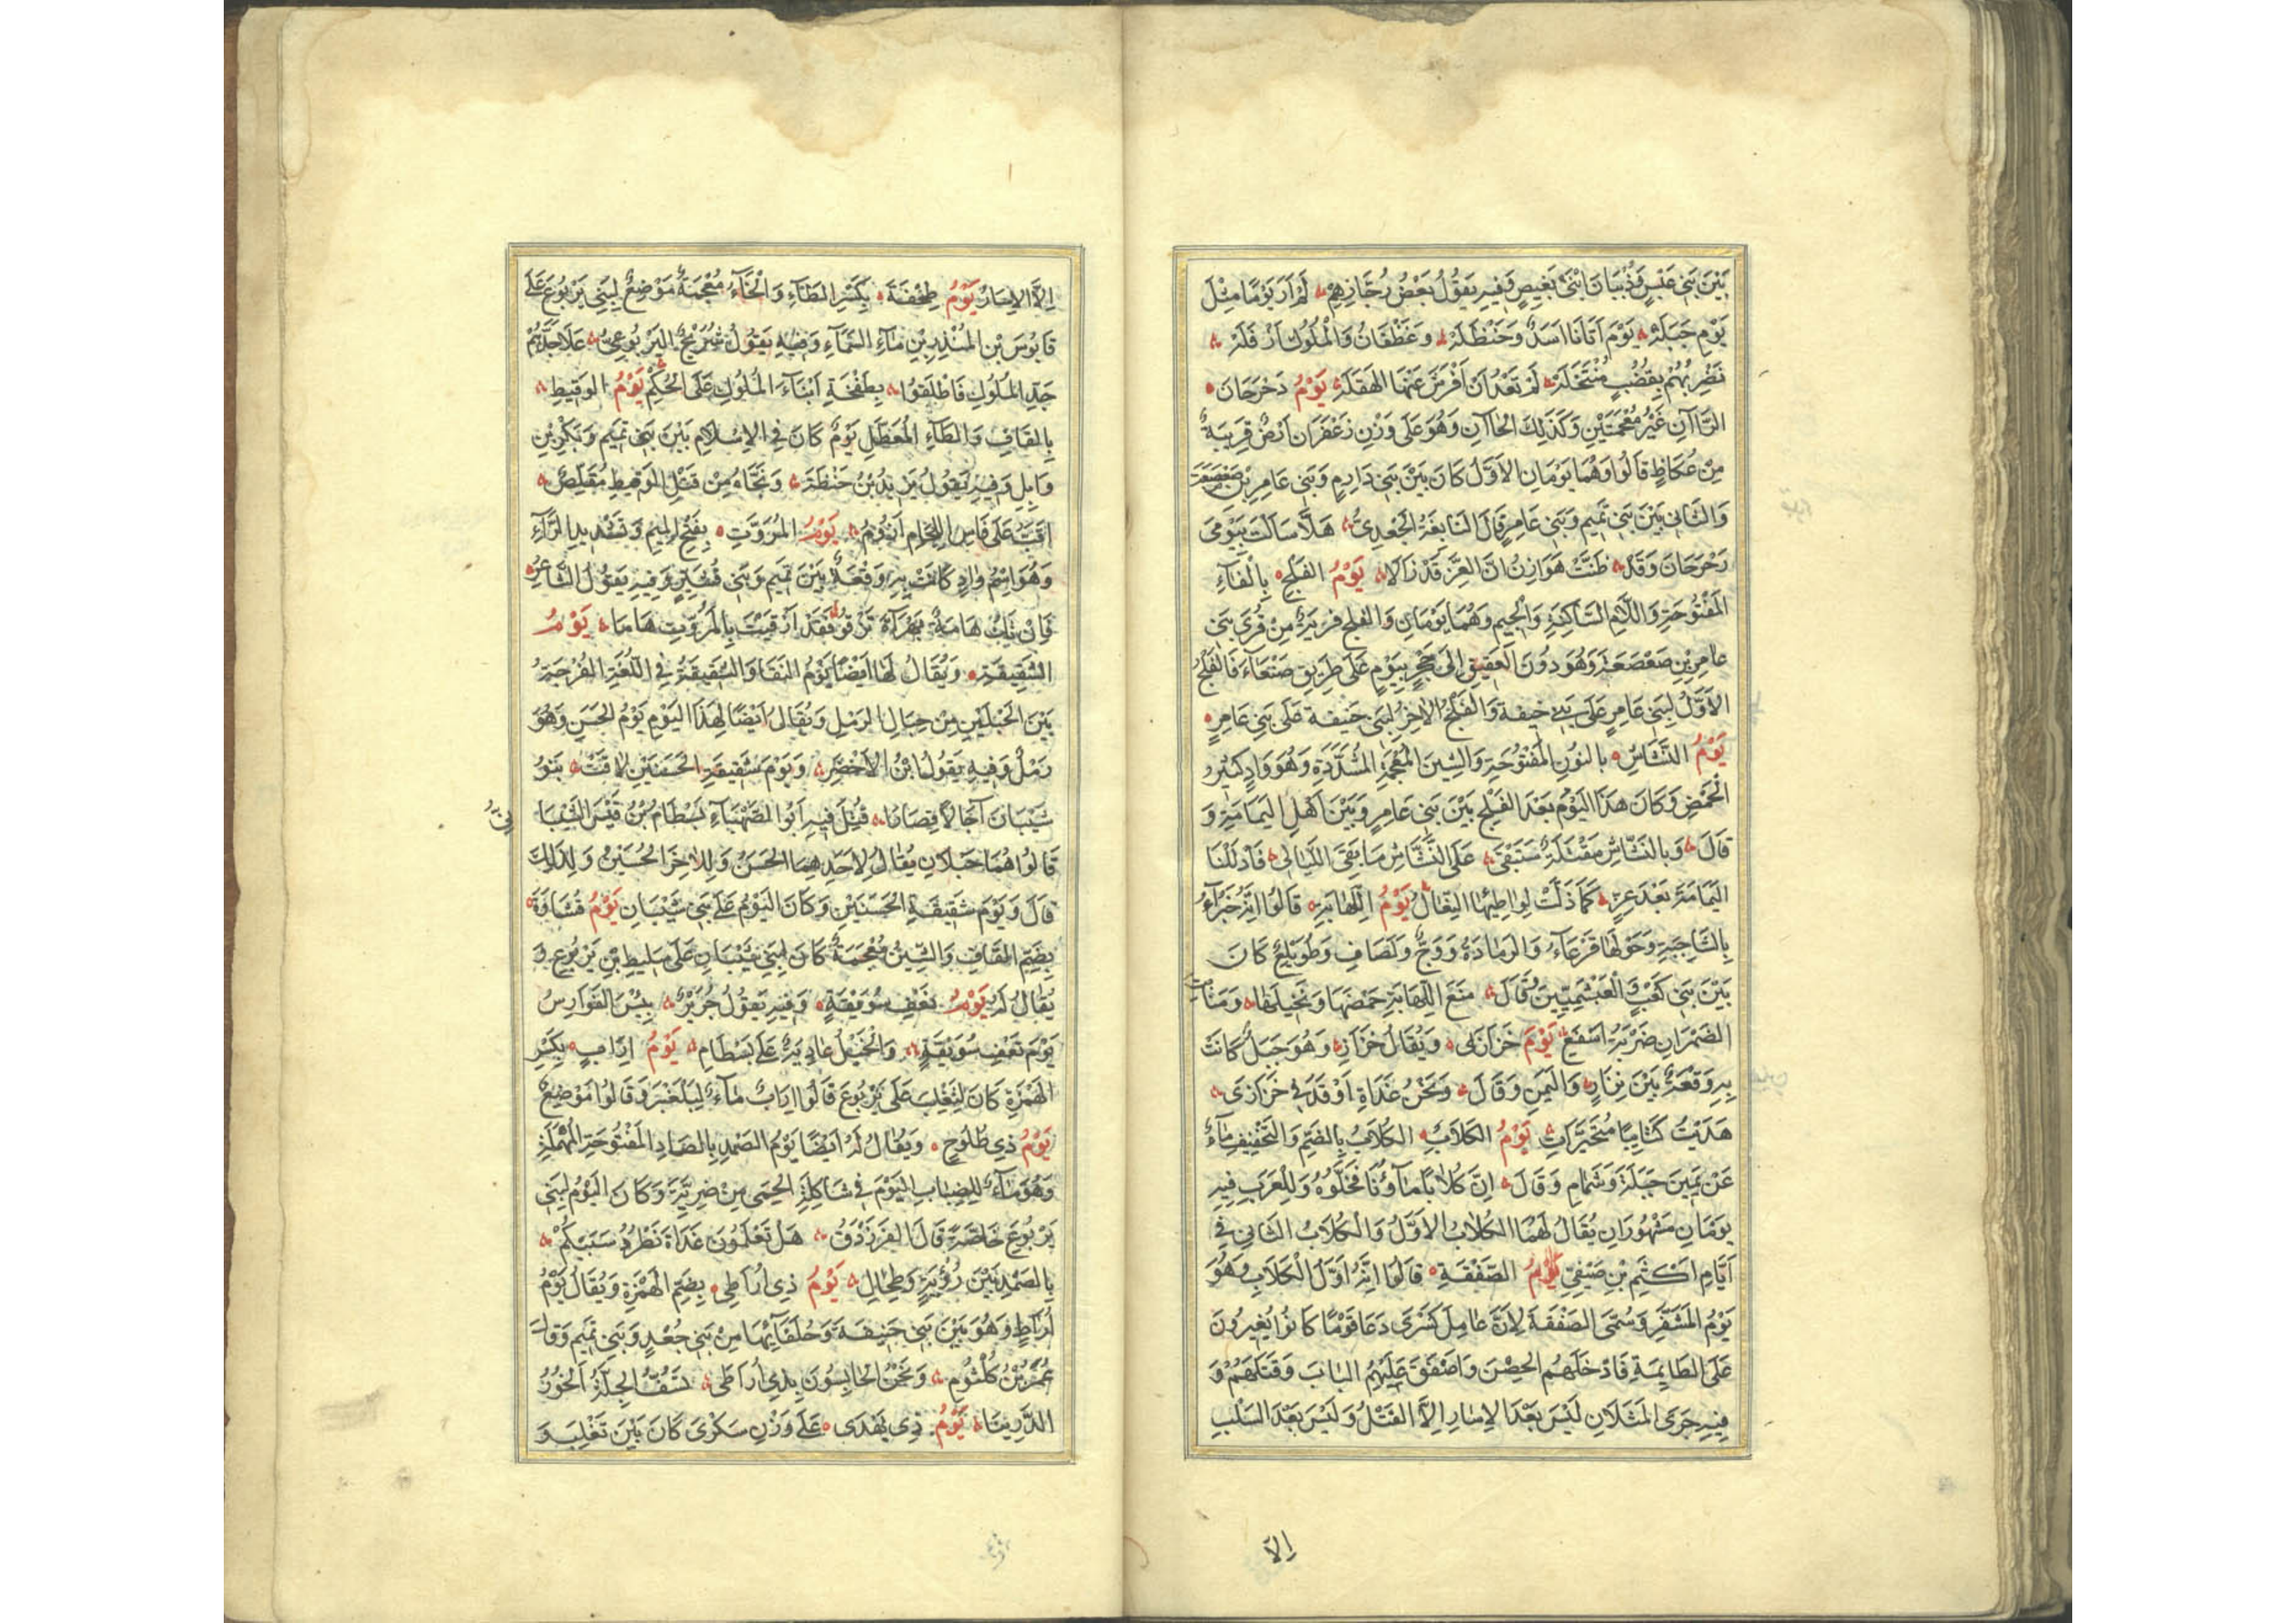 بَيْنَ بَنِي عَبْسٍ وَذُبْيَانَ ابْنَيْ بَغِيضٍ وَفِيهِ يَقُولُ بَعْضُ رُجَّازِهِمْ لَمْ أَرَ يَوْمًا مِثْلَ
يَوْمِ جَبَلَةْ يَوْمَ أَتَانَا أَسَدٌ وَحَنْظَلَةْ وَغَطْفَانُ وَالْمُلُوكُ أَزْفَلَةْ
نَضْرِبُهُمْ بِقُضُبٍ مُنْتَخَلَةْ لَمْ تَعْدُ أَنْ أَفْرَشَ عَنْهَا الصَّقَلَةْ يَوْمُ دَحْرَحَانَ
الرَّاآنِ غَيْرُ مُعْجَمَتَيْنِ وَكَذَلِكَ الْحَاآنِ وَهُوَ عَلَى وَزْنِ زَعْفَرَانَ أَرْضٌ قَرِيبَةٌ
مِنْ عُكَاظٍ قَالُوا وَهُمَا يَوْمَانِ الأَوَّلُ كَانَ بَيْنَ بَنِي دَارِمٍ وَبَنِي عَامِرِ بْنِ صَعْصَعَةَ
وَالثَّانِي بَيْنَ بَنِي تَمِيمٍ وَبَنِي عَامِرٍ قَالَ النَّابِغَةُ الْجَعْدِيُّ هَلَّا سَأَلْتَ بِيَوْمَيْ
رَحْرَحَانَ وَقَدْ ظَنَّتْ هَوَازِنُ أَنَّ الْعِزَّ قَدْ زَالَا يَوْمُ الْفَلْجِ بِالْفَاءِ
الْمَفْتُوحَةِ وَاللَّامِ السَّاكِنَةِ وَالْجِيمِ وَهُمَا يَوْمَانِ وَالْفَلْجُ قَرْيَةٌ مِنْ قُرَى بَنِي
عَامِرِ بْنِ صَعْصَعَةَ وَهُوَ دُونَ الْعَقِيقِ إِلَى حَجْرٍ بِيَوْمٍ عَلَى طَرِيقِ صَنْعَاءَ فَالْفَلْجُ
الأَوَّلُ لِبَنِي عَامِرٍ عَلَى بَنِي حَنِيفَةَ وَالْفَلْجُ الآخِرُ لِبَنِي حَنِيفَةَ عَلَى بَنِي عَامِرٍ
يَوْمُ النَّشَّاشِ بِالنُّونِ الْمَفْتُوحَةِ وَالشِّينِ الْمُعْجَمَةِ الْمُشَدَّدَةِ وَهُوَ وَادٍ كَثِيرُ
الْحَمْضِ وَكَانَ هَذَا الْيَوْمُ بَعْدَ الْفَلْجِ بَيْنَ بَنِي عَامِرٍ وَبَيْنَ أَهْلِ الْيَمَامَةِ وَ
قَالَ وَبِالنَّشَّاشِ مَقْتَلَةٌ سَتَبْقَى عَلَى النَّشَّاشِ مَا بَقِيَ اللَّيَالِي فَأَذْلَلْنَا
الْيَمَامَةَ بَعْدَ عِزٍّ كَمَا ذَلَّتْ لِوَاطِيهَا النِّعَالُ يَوْمُ اللِّهَابَةِ قَالُوا إِنَّهُ خَبْرَاءُ
بِالشَّاجِنَةِ وَحَوْلَهَا قَرْعَاءُ وَالرَّمَادَةُ وَوَجٌّ وَلَصَافِ وَطُوَيْلِعٌ كَانَ
بَيْنَ بَنِي كَعْبٍ وَالْعَبْشَمِيِّينَ قَالَ مَنَعَ اللِّهَابَةَ حَمْضَهَا وَنَخِيلَهَا وَمَنَابِتَ
الضَّمْرَانِ ضَرْبَةُ أَسْفَعِ يَوْمُ خَزَازَى وَيُقَالُ خَزَازٍ وَهُوَ جَبَلٌ كَانَتْ
بِهِ وَقْعَةٌ بَيْنَ نِزَارٍ وَالْيَمَنِ وَقَالَ وَنَحْنُ غَدَاةَ أُوقِدَ فِي خَزَازَى
هَدَيْتُ كَتَائِبًا مُتَحَيِّرَاتِ يَوْمُ الْكُلَابِ الْكُلَابُ بِالضَّمِّ وَالتَّخْفِيفِ مَاءٌ
عَنْ يَمِينِ جَبَلَةَ وَشَمَامِ وَقَالَ إِنَّ كُلَابًا مَاؤُنَا فَخَلُّوهُ وَلِلْعَرَبِ فِيهِ
يَوْمَانِ مَشْهُورَانِ يُقَالُ لَهُمَا الْكُلَابُ الأَوَّلُ وَالْكُلَابُ الثَّانِي فِي
أَيَّامِ أَكْثَمَ بْنِ صَيْفِيٍّ يَوْمُ الصَّفْقَةِ قَالُوا إِنَّهُ أَوَّلُ الْكُلَابِ وَهُوَ
يَوْمُ الْمُشَقَّرِ وَسُمِّيَ الصَّفْقَةَ لِأَنَّ عَامِلَ كِسْرَى دَعَا قَوْمًا كَانُوا يُغِيرُونَ
عَلَى الطَّائِمَةِ فَأَدْخَلَهُمُ الْحِصْنَ وَأَصْفَقَ عَلَيْهِمُ الْبَابَ وَقَتَلَهُمْ وَ
فِيهِ جَرَى الْمَثَلَانِ لَيْسَ بَعْدَ الإِسَارِ إِلَّا الْقَتْلُ وَلَيْسَ بَعْدَ السَّلْبِ
إلا
إِلَّا الإِسَارُ يَوْمُ طِخْفَةَ بِكَسْرِ الطَّاءِ وَالْخَاءُ مُعْجَمَةٌ مَوْضِعٌ لِبَنِي يَرْبُوعٍ عَلَى
قَابُوسَ بْنِ الْمُنْذِرِ بْنِ مَاءِ السَّمَاءِ وَفِيهِ يَقُولُ شُرَيْحٌ الْيَرْبُوعِيُّ عَلَا جَدُّهُمْ
جَدَّ الْمُلُوكِ فَأَطْلَقُوا بِطِخْفَةَ أَبْنَاءَ الْمُلُوكِ عَلَى الْحُكْمِ يَوْمُ الْوَقِيطِ
بِالْقَافِ وَالطَّاءِ الْمُعَطَّلِ يَوْمٌ كَانَ فِي الإِسْلَامِ بَيْنَ بَنِي تَمِيمٍ وَبَكْرِ بْنِ
وَائِلٍ وَفِيهِ يَقُولُ يَزِيدُ بْنُ حَنْظَلَةَ وَنَجَّاهُ مِنْ قَتْلِ الْوَقِيطِ مُقَلِّصٌ
أَقَبُّ عَلَى فَأْسِ اللِّجَامِ أَزُومُ يَوْمُ الْمَرُّوتِ بِفَتْحِ الْمِيمِ وَتَشْدِيدِ الرَّاءِ
وَهُوَ اسْمُ وَادٍ كَانَتْ بِهِ وَقْعَةٌ بَيْنَ تَمِيمٍ وَبَنِي قُشَيْرٍ وَفِيهِ يَقُولُ الشَّاعِرُ
فَإِنْ تَكُ هَامَةٌ بِهَرَاةَ تَزْقُو فَقَدْ أَزْقَيْتَ بِالْمَرُّوتِ هَامَا يَوْمُ
الشَّقِيقَةِ وَيُقَالُ لَهَا أَيْضًا يَوْمُ النَّقَا وَالشَّقِيقَةُ فِي اللُّغَةِ الْفُرْجَةُ
بَيْنَ الْحَبْلَيْنِ مِنْ حِبَالِ الرَّمْلِ وَيُقَالُ أَيْضًا لِهَذَا الْيَوْمِ يَوْمُ الْحَسَنِ وَهُوَ
رَمْلٌ وَفِيهِ يَقُولُ ابْنُ الأَخْضَرِ وَيَوْمَ شَقِيقَةِ الْحَسَنَيْنِ لَاقَتْ بَنُو
شَيْبَانَ آجَالًا قِصَارًا قُتِلَ فِيهِ أَبُو الصَّهْبَاءِ بِسْطَامُ بْنُ قَيْسٍ الشَّيْبَانِيُّ
قَالُوا هُمَا حَبْلَانِ يُقَالُ لِأَحَدِهِمَا الْحَسَنُ وَلِلآخَرِ الْحُسَيْنُ وَلِذَلِكَ
قَالَ وَيَوْمَ شَقِيقَةِ الْحَسَنَيْنِ وَكَانَ الْيَوْمُ عَلَى بَنِي شَيْبَانَ يَوْمُ قُشَاوَةَ
بِضَمِّ الْقَافِ وَالشِّينُ مُعْجَمَةٌ كَانَ لِبَنِي شَيْبَانَ عَلَى سَلِيطِ بْنِ يَرْبُوعٍ وَ
يُقَالُ لَهُ يَوْمُ نَعْفِ سُوَيْقَةٍ وَفِيهِ يَقُولُ جُرَيْرٌ بِئْسَ الْفَوَارِسُ
يَوْمَ نَعْفِ سُوَيْقَةٍ وَالْخَيْلُ عَادِيَةٌ عَلَى بِسْطَامِ يَوْمُ إِرَابٍ بِكَسْرِ
الْهَمْزَةِ كَانَ لِتَغْلِبَ عَلَى يَرْبُوعَ قَالُوا إِرَابٌ مَاءٌ لِبَلْعَنْبَرِ وَقَالُوا مَوْضِعٌ
يَوْمُ ذِي طُلُوحٍ وَيُقَالُ لَهُ أَيْضًا يَوْمُ الصَّمْدِ بِالصَّادِ الْمَفْتُوحَةِ الْمُهْمَلَةِ
وَهُوَ مَاءٌ لِلضِّبَابِ الْيَوْمَ فِي شَاكِلَةِ الْحِمَى مِنْ ضَرِيَّةَ وَكَانَ الْيَوْمُ لِبَنِي
يَرْبُوعَ خَاصَّةً قَالَ الْفَرَزْدَقُ هَلْ تَعْلَمُونَ غَدَاةَ نَطْرُدُ سَبْيَكُمْ
بِالصَّمْدِ بَيْنَ رُؤَيَّةٍ وَطِحَالِ يَوْمُ ذِي أُرَاطَى بِضَمِّ الْهَمْزَةِ وَيُقَالُ يَوْمُ
أُرَاطٍ وَهُوَ بَيْنَ بَنِي حَنِيفَةَ وَحُلَفَائِهَا مِنْ بَنِي جُعْدٍ وَبَنِي تَمِيمٍ وَقَالَ
عُمَرُ بْنُ كُلْثُومٍ وَنَحْنُ الْحَابِسُونَ بِذِي أُرَاطَى تَسُفُّ الْجِلَّةُ الْخُورُ
الدَّرِينَا يَوْمُ ذِي بَهْدَى عَلَى وَزْنِ سَكْرَى كَانَ بَيْنَ تَغْلِبَ وَ